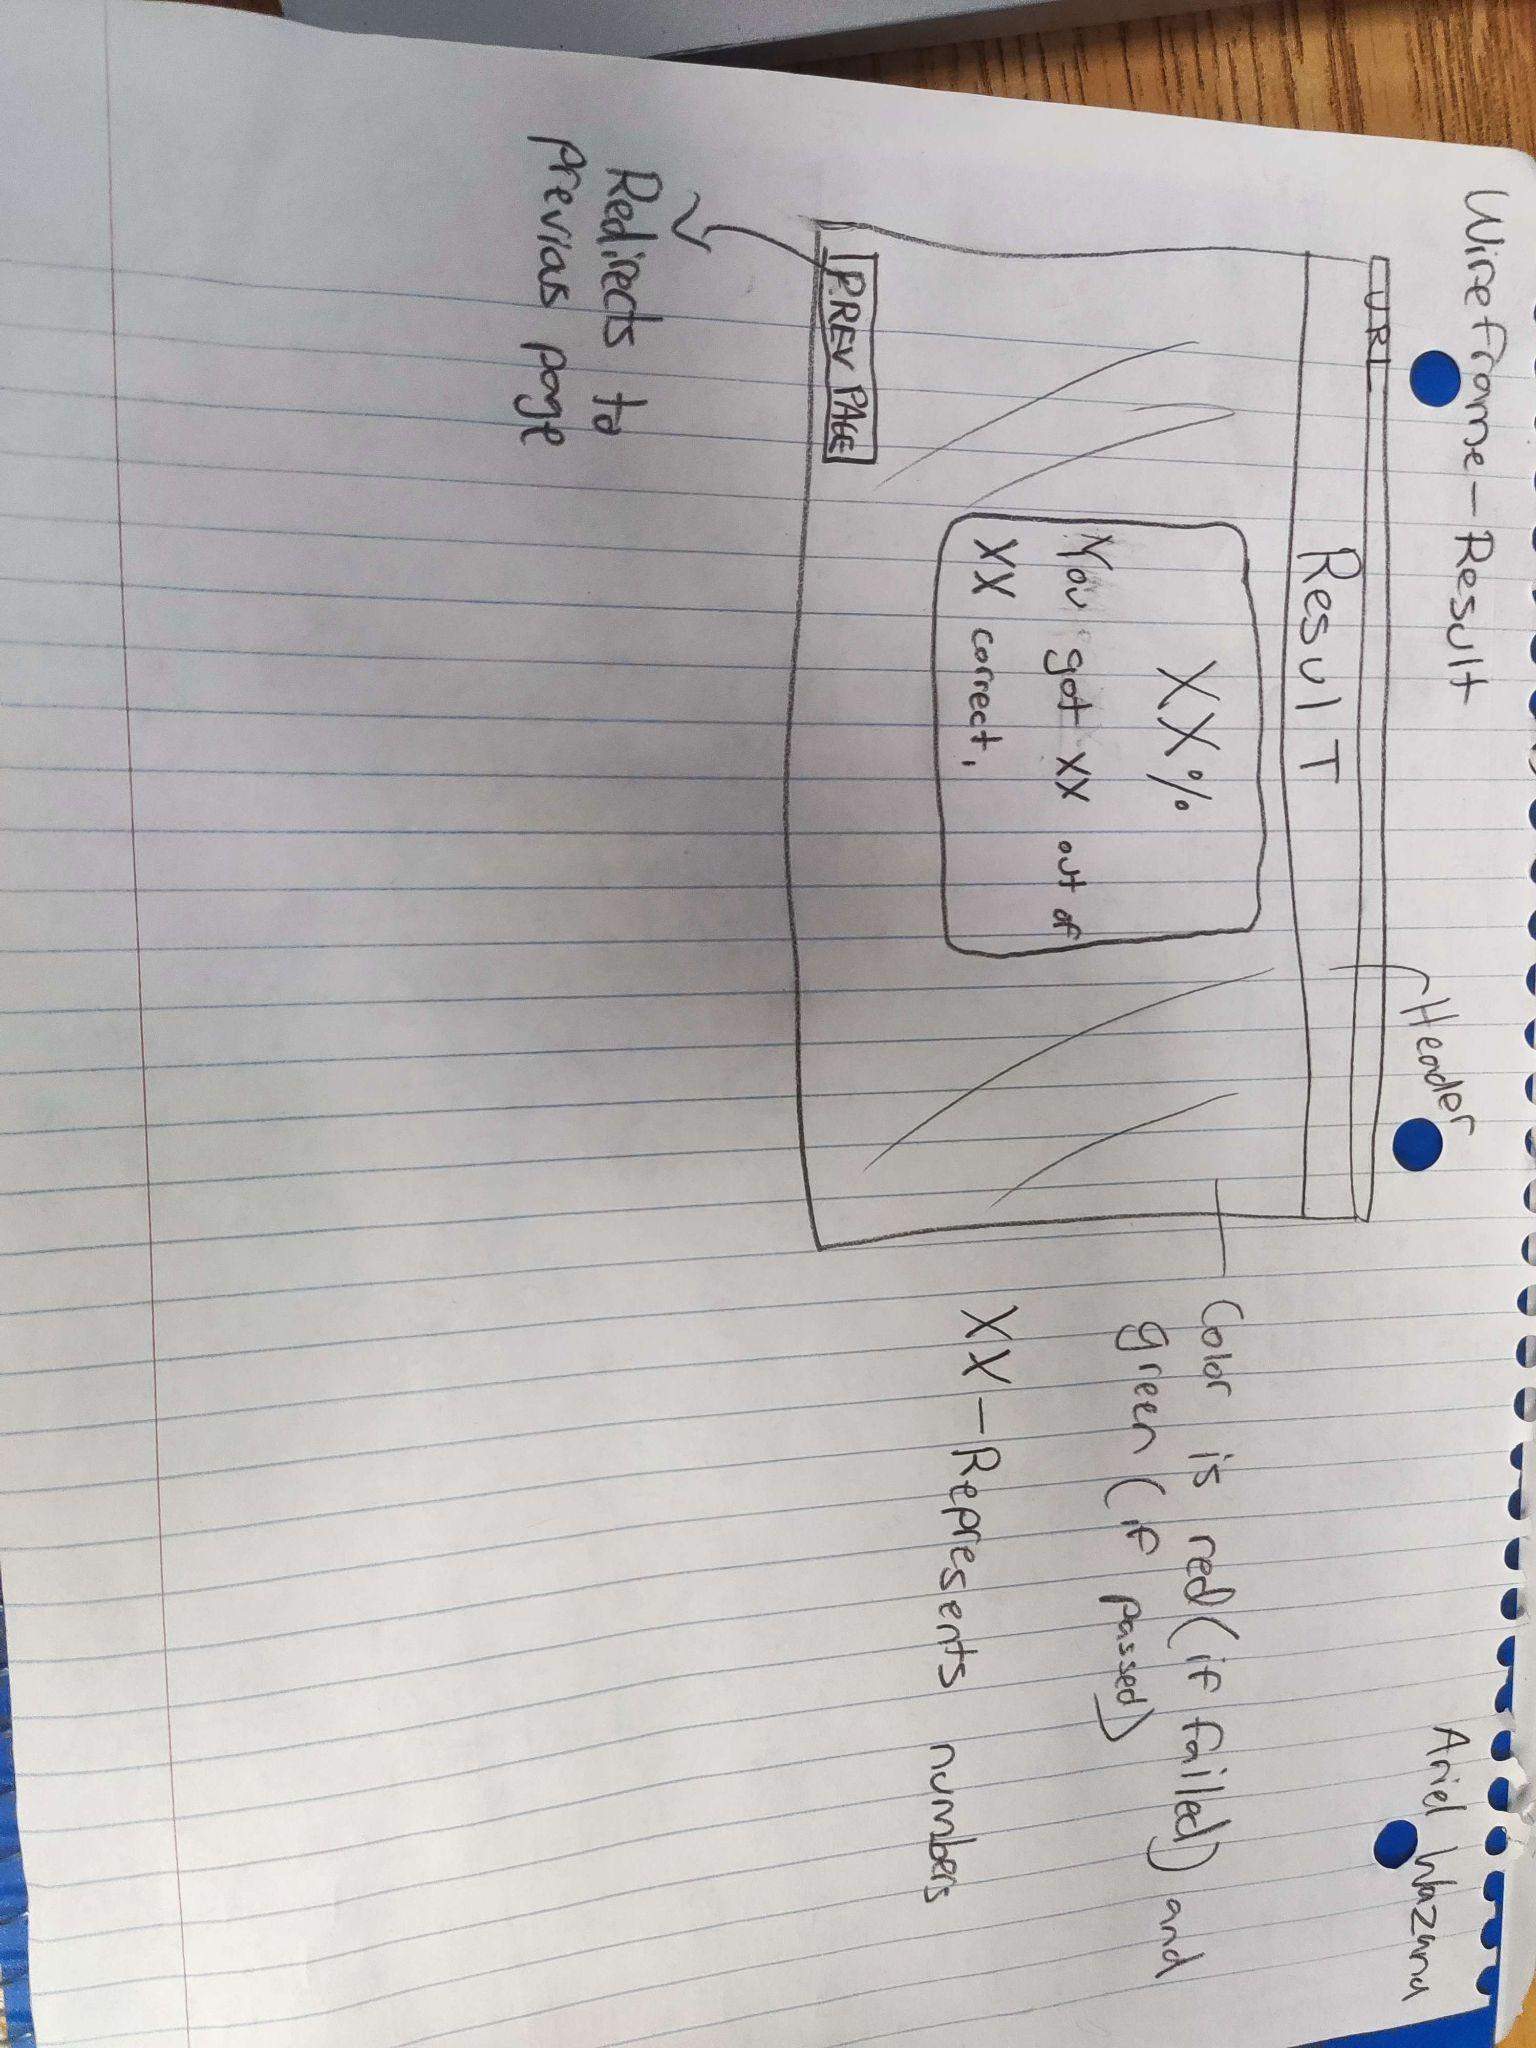 Wireframe-Result
Ariel Wazana
Header
URL
Result
XX%
You got XX out of
XX correct.
PREV PAGE
Redirects to
previous page
Color is red (if failed) and
green (if passed)
XX-Represents numbers